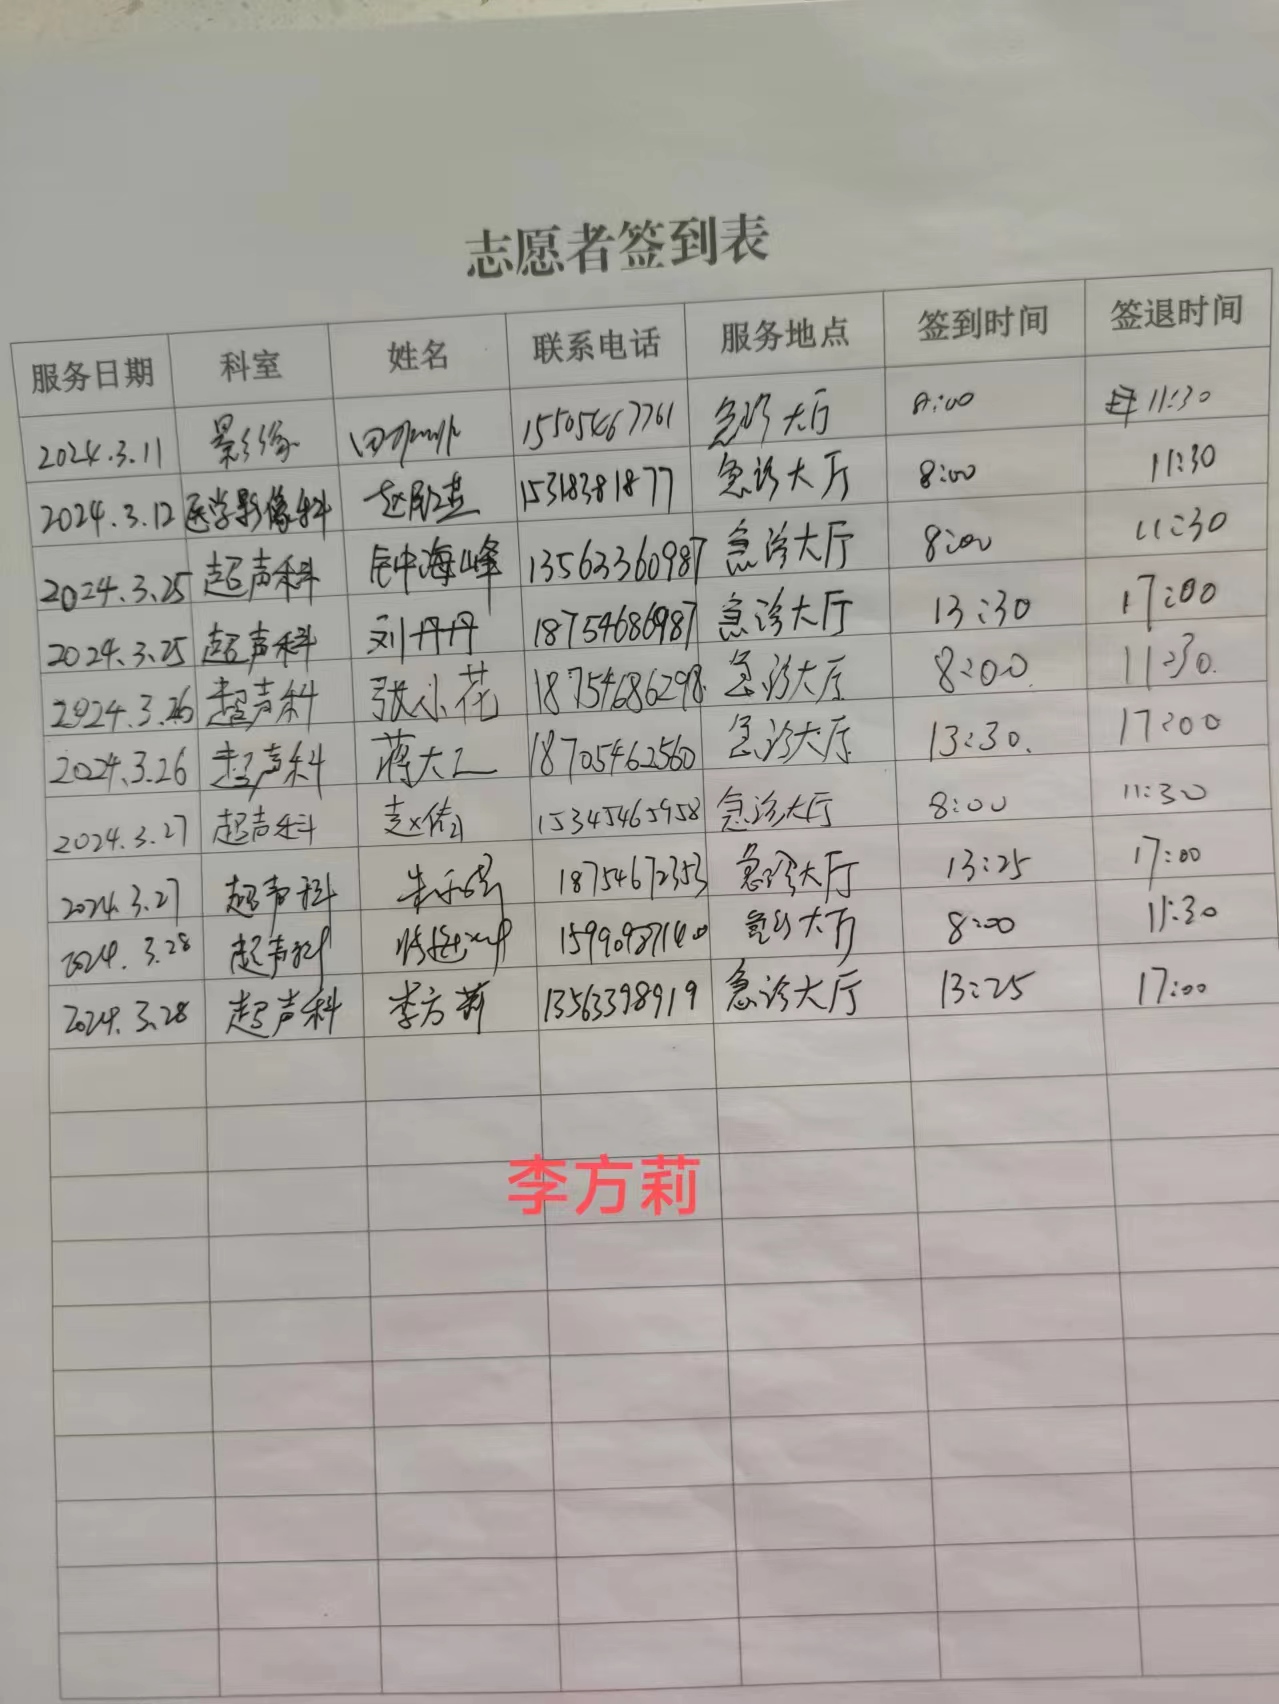 志愿者签到表
服务日期 科室 姓名 联系电话 服务地点 签到时间 签退时间
2024.3.11 影像 15505467761 急诊大厅 8:00 11:30
2024.3.12 医学影像科 15318381877 急诊大厅 8:00 11:30
2024.3.25 超声科 钟海峰 13563360987 急诊大厅 8:00 11:30
2024.3.25 超声科 刘丹丹 18754686987 急诊大厅 13:30 17:00
2024.3.26 超声科 张小花 18754686298 急诊大厅 8:00 11:30
2024.3.26 超声科 蒋大工 18705462560 急诊大厅 13:30 17:00
2024.3.27 超声科 15345465958 急诊大厅 8:00 11:30
2024.3.27 超声科 18754672353 急诊大厅 13:25 17:00
2024.3.28 超声科 15990987140 急诊大厅 8:00 11:30
2024.3.28 超声科 李方莉 13563398919 急诊大厅 13:25 17:00
李方莉